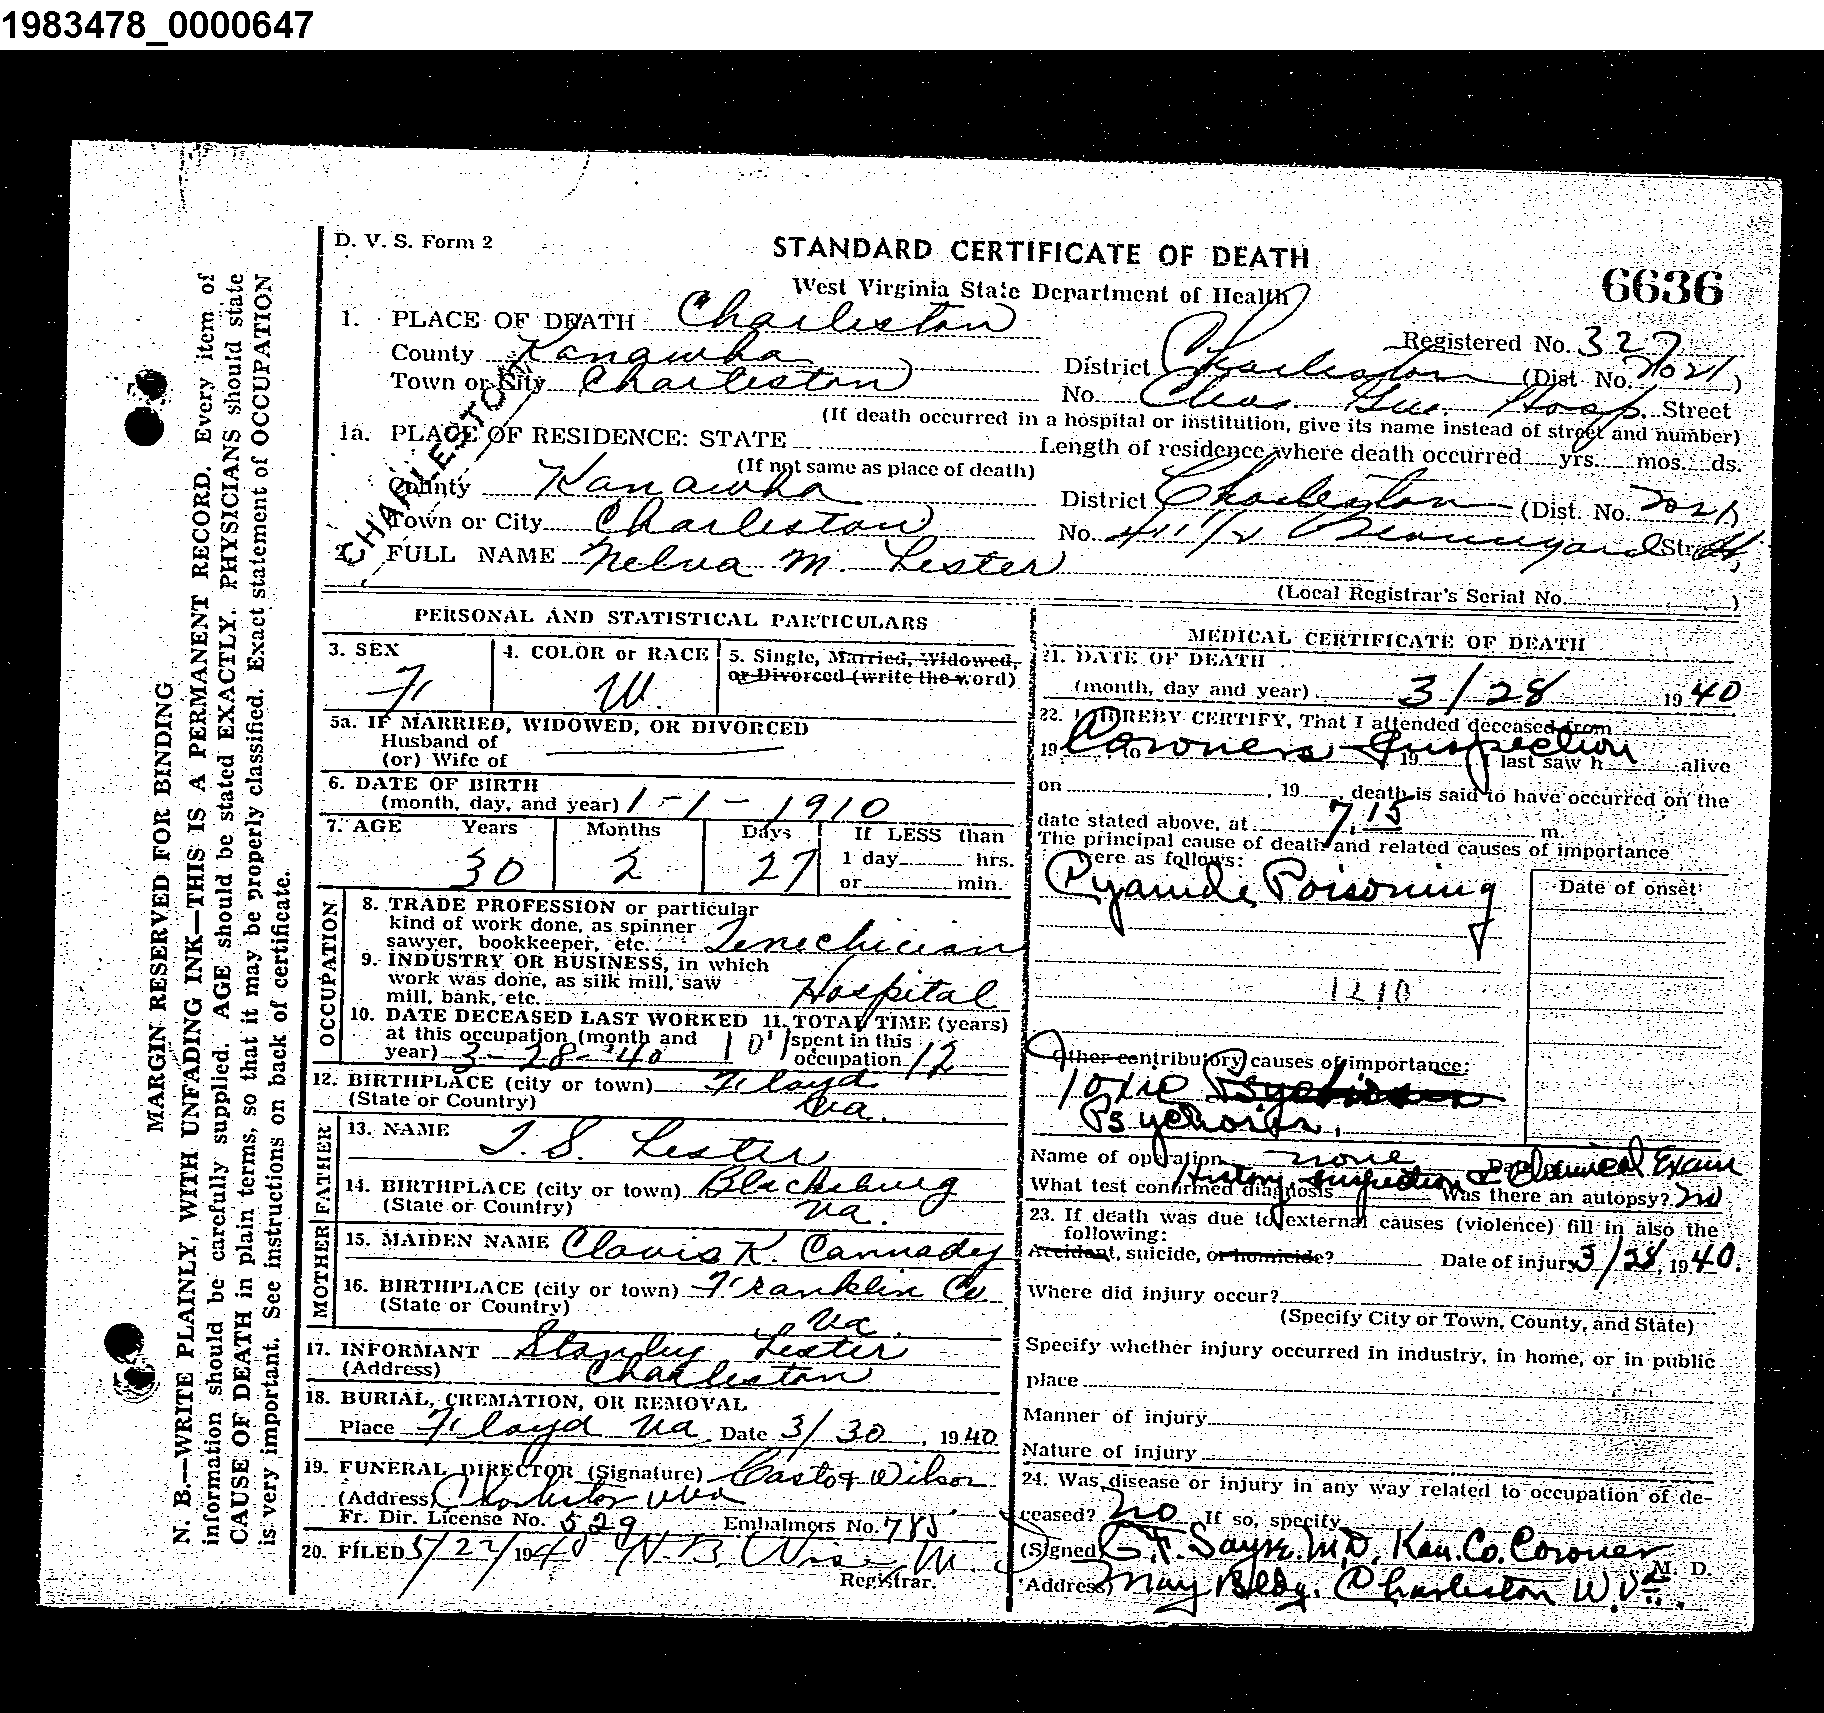 1983478_0000647
D. V. S. Form 2
STANDARD CERTIFICATE OF DEATH
West Virginia State Department of Health
6636
1. PLACE OF DEATH Charleston
Registered No. 327
County Kanawha District Charleston (Dist. No. 2021)
Town or City Charleston No. Chas. Gen. Hosp. Street
(If death occurred in a hospital or institution, give its name instead of street and number)
CHARLESTON
1a. PLACE OF RESIDENCE: STATE Length of residence where death occurred yrs. mos. ds.
(If not same as place of death)
County Kanawha District Charleston (Dist. No. 2021)
Town or City Charleston No. 411 1/2 Street
2. FULL NAME Nelva M. Lester
(Local Registrar's Serial No. )
PERSONAL AND STATISTICAL PARTICULARS
3. SEX F
4. COLOR or RACE W.
5. Single, Married, Widowed, or Divorced (write the word)
5a. IF MARRIED, WIDOWED, OR DIVORCED
Husband of
(or) Wife of
6. DATE OF BIRTH
(month, day, and year) 1-1-1910
7. AGE Years Months Days If LESS than
30 2 27 1 day hrs.
or min.
OCCUPATION
8. TRADE PROFESSION or particular
kind of work done, as spinner
sawyer, bookkeeper, etc. Tenechician
9. INDUSTRY OR BUSINESS, in which
work was done, as silk mill, saw
mill, bank, etc. Hospital
10. DATE DECEASED LAST WORKED
at this occupation (month and
year) 3-28-40
11. TOTAL TIME (years)
spent in this
occupation 12
12. BIRTHPLACE (city or town) Floyd
(State or Country) Va.
FATHER
13. NAME T. S. Lester
14. BIRTHPLACE (city or town) Blacksburg
(State or Country) Va.
MOTHER
15. MAIDEN NAME Clovis K. Cannady
16. BIRTHPLACE (city or town) Franklin Co
(State or Country) Va.
17. INFORMANT Stanley Lester
(Address) Charleston
18. BURIAL, CREMATION, OR REMOVAL
Place Floyd Va. Date 3/30, 1940
19. FUNERAL DIRECTOR (Signature) Casto & Wilson
(Address) Charleston W Va
Fr. Dir. License No. 529 Embalmers No. 785
20. FILED 5/22/1940 H. B. Wise M. D
Registrar.
MEDICAL CERTIFICATE OF DEATH
21. DATE OF DEATH
(month, day and year) 3/28 1940
22. I HEREBY CERTIFY, That I attended deceased from
Coroners Inspection
19 , to 19 I last saw h alive
on , 19 , death is said to have occurred on the
date stated above, at 7.15 m.
The principal cause of death and related causes of importance
were as follows:
Date of onset
Cyanide Poisoning
1210
Other contributory causes of importance:
Toxic
Psychosis.
Name of operation none
What test confirmed diagnosis History inspection & Chemical Exam Was there an autopsy? no
23. If death was due to external causes (violence) fill in also the
following:
Accident, suicide, or homicide? Date of injury 3/28, 1940.
Where did injury occur?
(Specify City or Town, County, and State)
Specify whether injury occurred in industry, in home, or in public
place
Manner of injury
Nature of injury
24. Was disease or injury in any way related to occupation of de-
ceased? no If so, specify
(Signed) M.D. Kan. Co. Coroner M. D.
(Address) May Bldg. Charleston W. Va.
MARGIN RESERVED FOR BINDING
N. B.—WRITE PLAINLY, WITH UNFADING INK—THIS IS A PERMANENT RECORD. Every item of
information should be carefully supplied. AGE should be stated EXACTLY. PHYSICIANS should state
CAUSE OF DEATH in plain terms, so that it may be properly classified. Exact statement of OCCUPATION
is very important. See instructions on back of certificate.